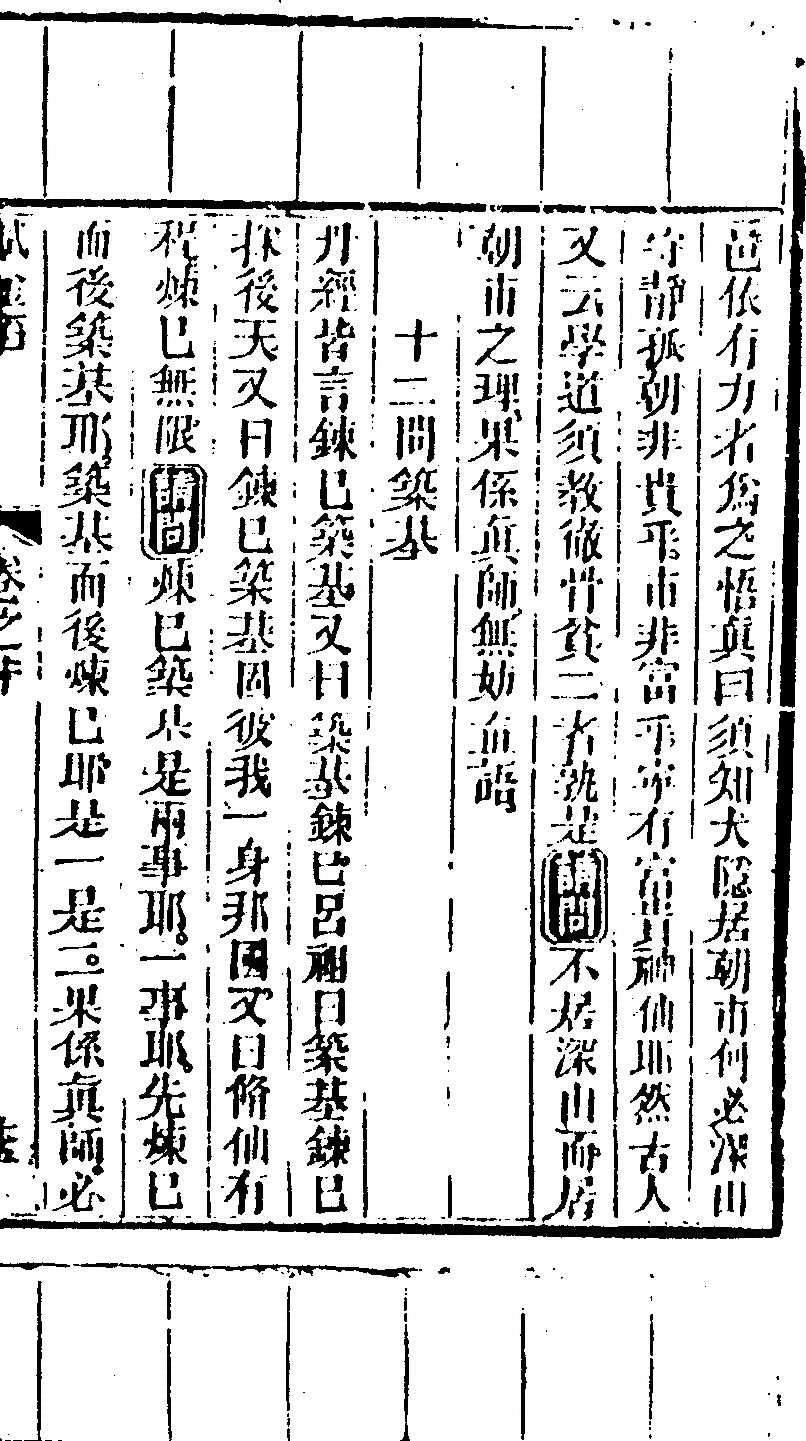 邑依有力者爲之悟眞曰須知大隱居朝市何必深山
守靜孤朝非貴乎市非富乎寜有富貴神仙耶然古人
又云學道須教徹骨貧二者孰是請問不居深山而居
朝市之理果係眞師無妨直語
十二問築基
丹經皆言鍊已築基又曰築基鍊已呂祖曰築基鍊已
採後天又曰鍊已築基固彼我一身邦國又曰脩仙有
程煉已無限請問煉已築基是兩事耶一事耶先煉已
而後築基耶築基而後煉已耶是一是二果係眞師必
試金石 卷之一